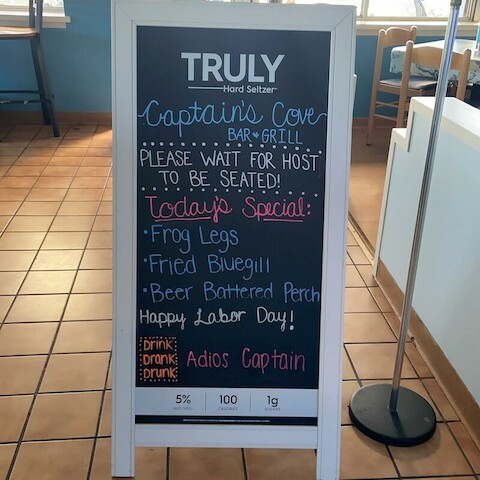 TRULY
Hard Seltzer
Captain's Cove
BAR & GRILL
PLEASE WAIT FOR HOST
TO BE SEATED!
Today's Special:
• Frog Legs
• Fried Bluegill
• Beer Battered Perch
Happy Labor Day!
Drink
Drank
Drunk
Adios Captain
5% 100 1g
ALC./VOL. CALORIES SUGARS